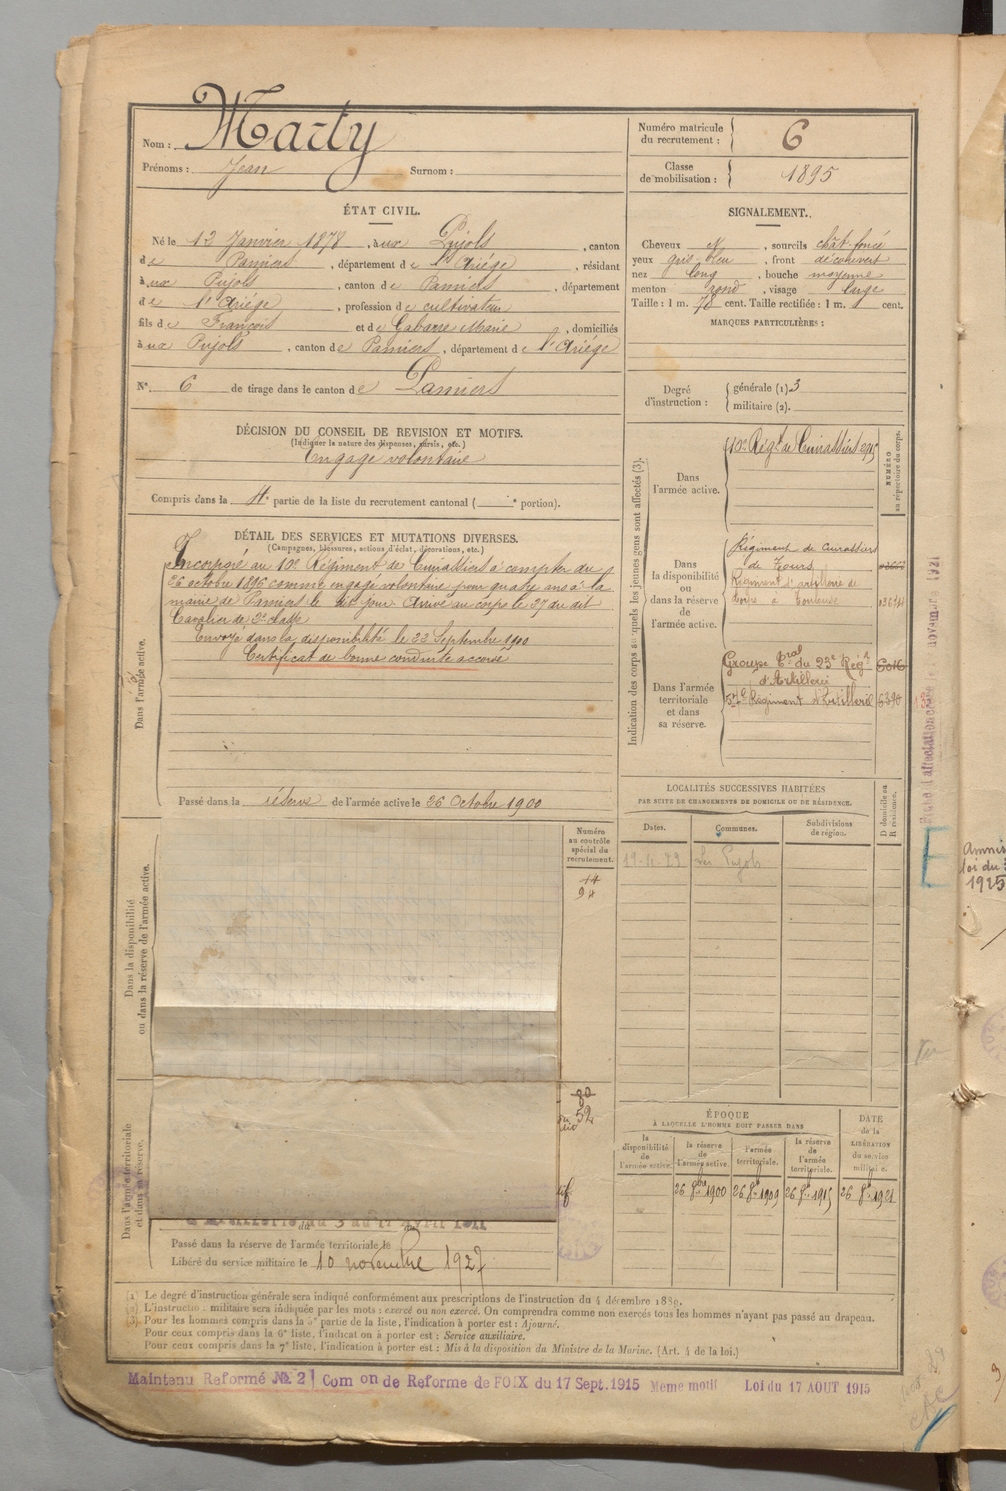 Nom : Marty
Prénoms : Jean Surnom :
Numéro matricule du recrutement : 6
Classe de mobilisation : 1895
ÉTAT CIVIL.
Né le 12 Janvier 1878, à ux Pujols, canton
de Pamiers, département de l'Ariége, résidant
à ux Pujols, canton de Pamiers, département
de l'Ariége, profession de cultivateur
fils de François et de Gabarre Marie, domiciliés
à ux Pujols, canton de Pamiers, département de l'Ariége
N° 6 de tirage dans le canton de Pamiers
SIGNALEMENT.
Cheveux N, sourcils chât. foncé
yeux gris bleu, front découvert
nez long, bouche moyenne
menton rond, visage large
Taille : 1 m. 78 cent. Taille rectifiée : 1 m. cent.
MARQUES PARTICULIÈRES :
Degré d'instruction : générale (1) 3
militaire (2).
DÉCISION DU CONSEIL DE REVISION ET MOTIFS.
(Indiquer la nature des dispenses, sursis, etc.)
Engagé volontaire
Compris dans la 4e partie de la liste du recrutement cantonal ( e portion).
DÉTAIL DES SERVICES ET MUTATIONS DIVERSES.
(Campagnes, blessures, actions d'éclat, décorations, etc.)
Dans l'armée active.
Incorporé au 10e Régiment de Cuirassiers à compter du
26 octobre 1896 comme engagé volontaire pour quatre ans à la
mairie de Pamiers le dit jour. Arrivé au corps le 27 du dit
Cavalier de 2e classe
Envoyé dans la disponibilité le 22 Septembre 1900
Certificat de bonne conduite accordé
Passé dans la réserve de l'armée active le 26 Octobre 1900
Indication des corps auxquels les jeunes gens sont affectés (3).
NUMÉRO au répertoire du corps.
Dans l'armée active.
10e Régt de Cuirassiers
Dans la disponibilité ou dans la réserve de l'armée active.
Régiment de cuirassiers
de Tours
Régiment d'artillerie de
Corps à Toulouse
Dans l'armée territoriale et dans sa réserve.
Groupe tral du 23e Régt
d'Artillerie
57e Régiment d'Artillerie 6390
LOCALITÉS SUCCESSIVES HABITÉES
PAR SUITE DE CHANGEMENTS DE DOMICILE OU DE RÉSIDENCE.
Dates. Communes. Subdivisions de région. D domicile ou R résidence.
Les Pujols
Dans la disponibilité ou dans la réserve de l'armée active.
Numéro au contrôle spécial du recrutement.
14
94
80
52
Dans l'armée territoriale et dans sa réserve.
du 3 au 17 avril 1911
Passé dans la réserve de l'armée territoriale le
Libéré du service militaire le 10 novembre 1927
ÉPOQUE
À LAQUELLE L'HOMME DOIT PASSER DANS
la disponibilité de l'armée active.
la réserve de l'armée active.
l'armée territoriale.
la réserve de l'armée territoriale.
DATE de la LIBÉRATION du service militaire.
26 8bre 1900 26 8re 1909 26 8re 1915 26 8re 1921
(1) Le degré d'instruction générale sera indiqué conformément aux prescriptions de l'instruction du 4 décembre 1889.
(2) L'instruction militaire sera indiquée par les mots : exercé ou non exercé. On comprendra comme non exercés tous les hommes n'ayant pas passé au drapeau.
(3) Pour les hommes compris dans la 5e partie de la liste, l'indication à porter est : Ajourné.
Pour ceux compris dans la 6e liste, l'indication à porter est : Service auxiliaire.
Pour ceux compris dans la 7e liste, l'indication à porter est : Mis à la disposition du Ministre de la Marine. (Art. 4 de la loi.)
Maintenu Reformé No 2 Com on de Reforme de FOIX du 17 Sept. 1915 Meme motif Loi du 17 AOUT 1915
Amnis
loi du 3
1925